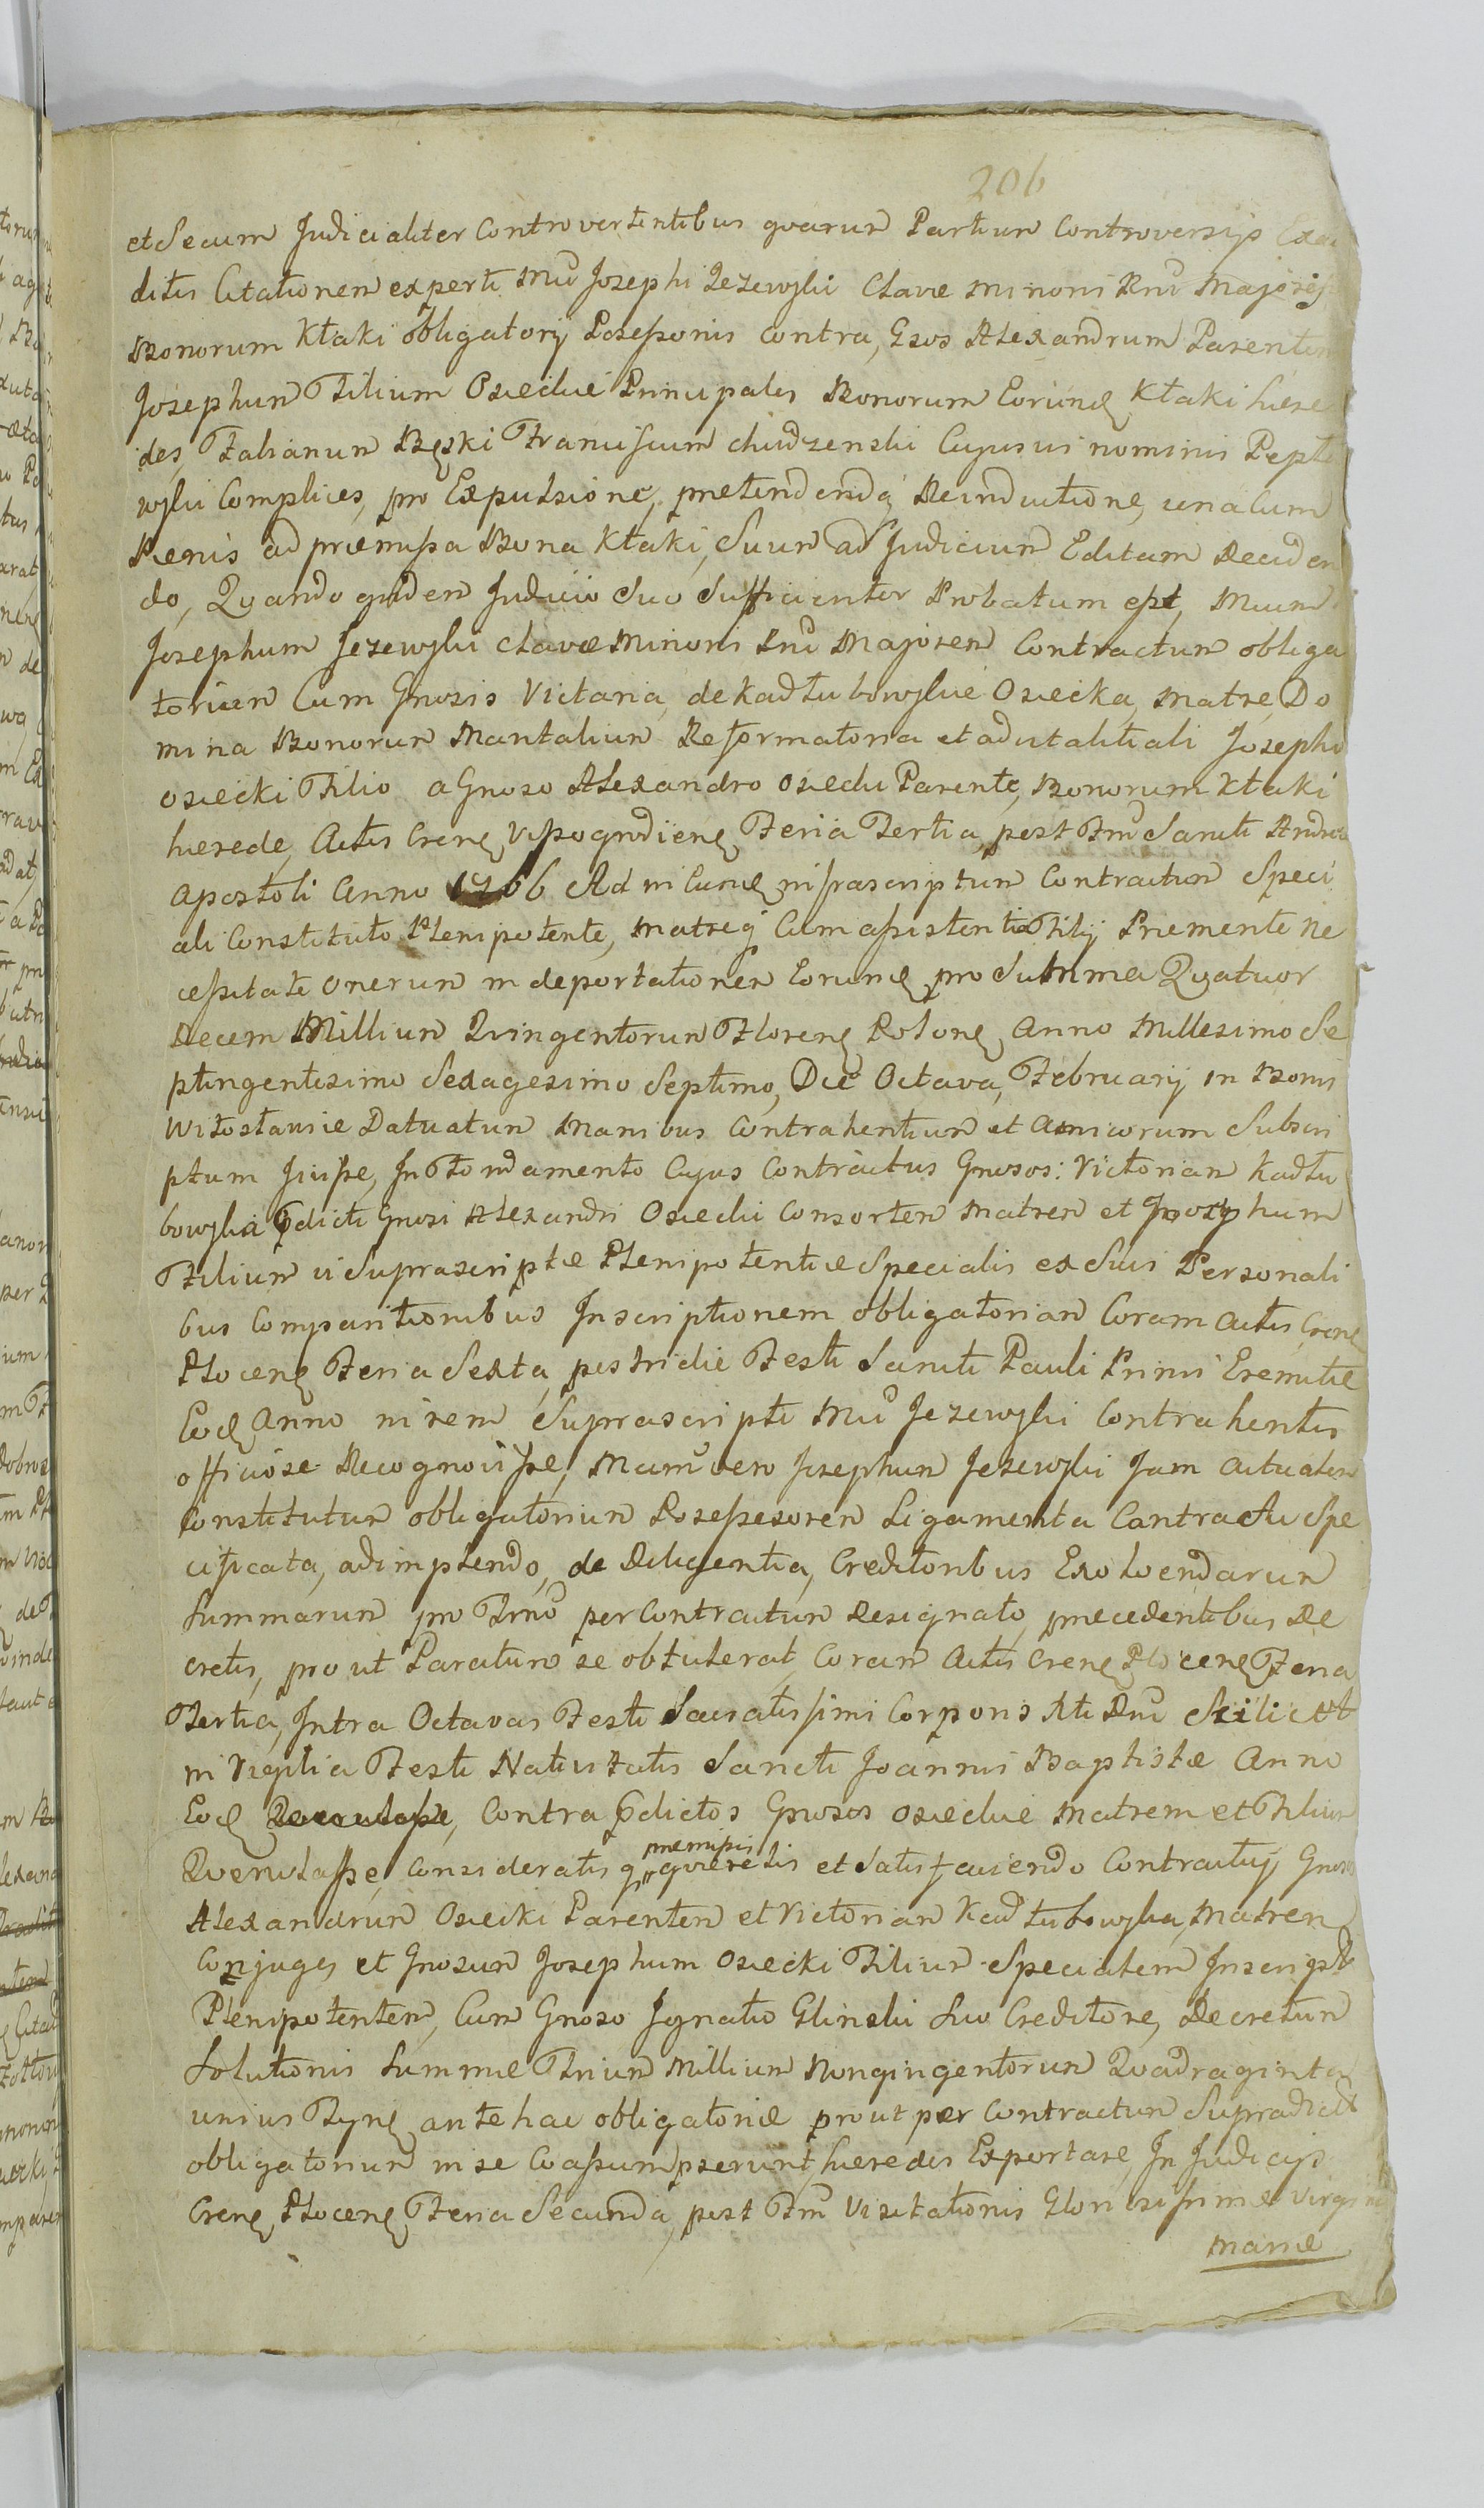 206
et Secum Judicialiter Controvertentibus qvarum Partium Controversijs Exau
ditis Citationem ex parte Mci Josephi Jezewski Clavæ minoris Rni Majoris
Bonorum Kłaki obligatorij Possessoris contra, Gsos Alexandrum Parentem
Josephum Filium Osieckie Principales Bonorum Eorund Kłaki hære
des, Fabianum Bęski Franciscum chudzenski Cujusvis nominis
Complices, pro Expulsione, prætendenda Reinductione, una Cum
Pænis ad præmissa Bona Kłaki, Suum ad Judicium Editam Deciden
do, Qvando qvidem Judicio Suo Sufficienter Probatum est, Mcum
Josephum Jezewski clavæ Minoris Rni Majorem Contractum obliga
torium Cum Gnosis Victoria, de Kadłubowskie Osiecka, Matre, Do
mina Bonorum Maritalium Reformatoria et advitalitiali Josepho
osiecki Filio a Gnoso Alexandro Osiecki Parente, Bonorum Kłaki
hærede, Actis Cren Vissogrodien Feria Tertia, post Fm Sancti Andreæ
Apostoli Anno 1766 Ad in Cund infrascriptum Contractum Speci
ali Constituto Plenipotente, Matreq Cum assistentia Filij Præmente ne
cessitate onerum in deportationem Eorund pro Summa Qvatuor
Decem Millium Qvingentorum Floren Polon, Anno Millesimo Se
ptingentesimo Sexagesimo Septimo, Die Octava, Februarij in Bonis
Witosławie Datuatum Manibus Contrahentium et Amicorum Subscri
ptum Jnisse, In Fondamento Cujus Contractus Gnosos: Victoriam Kadłu
bowska pdicti Gnosi Alexandri Osiecki Consortem Matrem et Josephum
Filium vi Suprascriptæ Plenipotentiæ Specialis ex Suis Personali
bus Comparitionibus Inscriptionem obligatoriam Coram Actis Cren
Plocen Feria Sexta, postridie Festi Sancti Pauli Primi Eremitæ
Eod Anno in rem Suprascripti Mci Jezewski Contrahentis
officiose Recognovisse, Mcum vero Josephum Jezewski Jam actualem
Constitutum obligatorium Possessorem Ligamenta Contractu Spe
cificata, adimplendo, de Diligentia, Creditoribus Exolvendarum
Summarum pro Fmo per Contractum Designato, præcedentibus De
cretis, prout Paratum se obtulerat, Coram Actis Cren Plocen Feria
Tertia, Intra Octavas Festi Sacratissimi Corporis Xti Dni Scilicet
in Vigilia Festi Nativitatis Sancti Joannis Baptistæ Anno
Eod Querulasse, Contra pdictos Gnosos osieckie Matrem et Filium
Qverulasse, Consideratis q præmissis qværelis et Satisfaciendo Contractuj Gnosos
Alexandrum Osiecki Parentem et Victoriam Kadłubowska, Matrem
Conjuges, et Gnosum Josephum Osiecki Filium Specialem Inscript
Plenipotentem, Cum Gnoso Ignatio Glinski Suo Creditore, Decretum
Solutionis Summæ Trium Millium Nongingentorum Qvadraginta
unius Tyn antehac obligatoriæ prout per Contractum Supradict
obligatorium in se Coassumpserunt, hæredes Exportare, In Judicijs
Cren Plocen Feria Secunda, post Fm Visitationis Gloriosissimæ Virginis
Mariæ